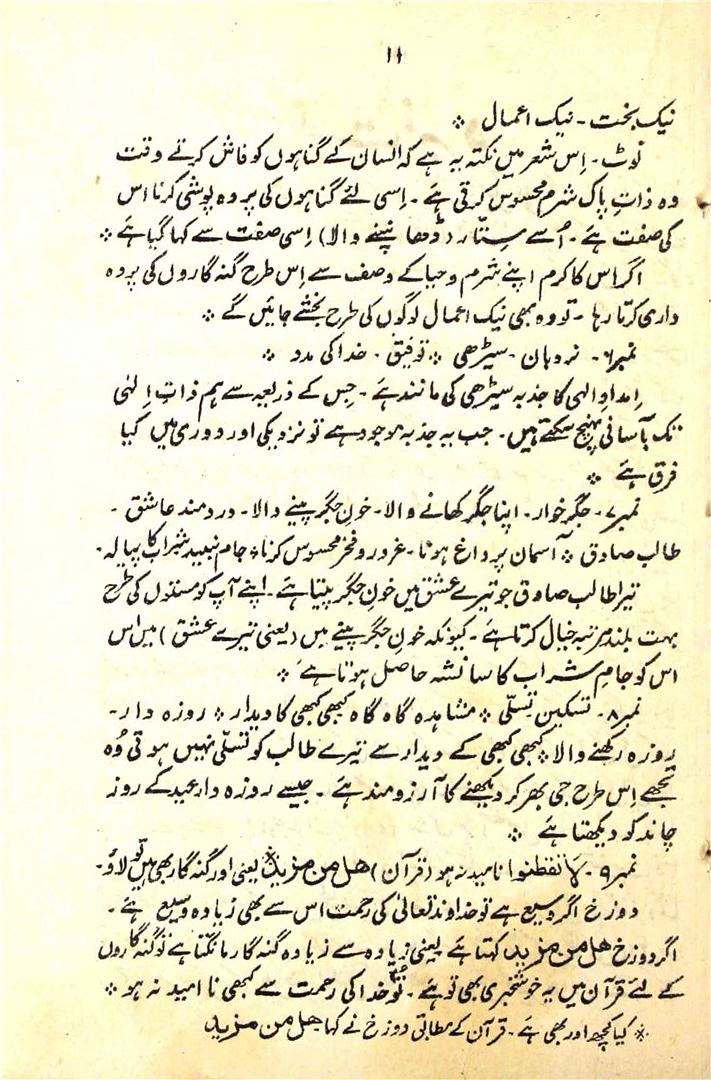 ۱۱
نیک بخت ۔ نیک اعمال ※
نوٹ ۔ اِس شعر میں نکتہ یہ ہے کہ انسان کے گناہوں کو فاش کرتے وقت
وہ ذاتِ پاک شرم محسوس کرتی ہے ۔ اِسی لئے گناہوں کی پردہ پوشی کرنا اس
کی صفت ہے ۔ اُسے ستّار (ڈھانپنے والا) اِسی صفت سے کہا گیا ہے ※
اگر اس کا کرم اپنے شرم و حیا کے وصف سے اِس طرح گنہ گاروں کی پردہ
داری کرتا رہا ۔ تو وہ بھی نیک اعمال لوگوں کی طرح بخشے جائیں گے ※
نمبر۶ ۔ نردبان ۔ سیڑھی ※ توفیق ۔ خدا کی مدد ※
اِمدادِ الٰہی کا جذبہ سیڑھی کی مانند ہے ۔ جِس کے ذریعہ سے ہم ذاتِ اِلٰہی
تک بآسانی پہنچ سکتے ہیں ۔ جب یہ جذبہ موجود ہے تو نزدیکی اور دوری میں کیا
فرق ہے ※
نمبر۷ ۔ جگر خوار ۔ اپنا جگر کھانے والا ۔ خونِ جگر پینے والا ۔ دردمند عاشق ۔
طالب صادق ※ آسمان پر داغ ہونا ۔ غرور و فخر محسوس کرنا ※ جام نبید شراب کا پیالہ ۔
تیرا طالب صادق جو تیرے عشق میں خونِ جگر پیتا ہے ۔ اپنے آپ کو مستوں کی طرح
بہت بلند مرتبہ خیال کرتا ہے ۔ کیونکہ خونِ جگر پینے میں (یعنی تیرے عشق) میں اس
اس کو جامِ شراب کا سا نشہ حاصل ہوتا ہے ※
نمبر۸ ۔ تسکین تسلّی ※ مشاہدہ گاہ گاہ کبھی کبھی کا دیدار ※ روزہ دار ۔
روزہ رکھنے والا ※ کبھی کبھی کے دیدار سے تیرے طالب کو تسلّی نہیں ہوتی وُہ
تجھے اِس طرح جی بھر کر دیکھنے کا آرزومند ہے ۔ جیسے روزہ دار عید کے روز
چاند کو دیکھتا ہے ※
نمبر۹ ۔ لا تقنطوا نا امید نہ ہو (قرآن) ھل من مزید※ یعنی اور گنہ گار بھی ہیں تو لاؤ۔
دوزخ اگر وسیع ہے تو خداوند تعالیٰ کی رحمت اس سے بھی زیادہ وسیع ہے ۔
اگر دوزخ ھل من مزید کہتا ہے یعنی زیادہ سے زیادہ گنہ گار مانگتا ہے تو گنہ گاروں
کے لئے قرآن میں یہ خوشخبری بھی تو ہے ۔ تُو خدا کی رحمت سے کبھی نا امید نہ ہو ※
※ کیا کچھ اور بھی ہے ۔ قرآن کے مطابق دوزخ نے کہا ھل من مزید